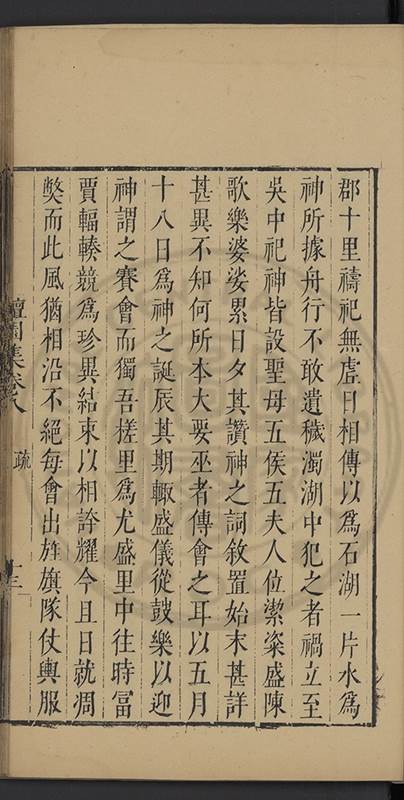 郡十里禱祀無虛日相傳以爲石湖一片水爲
神所據舟行不敢遺穢濁湖中犯之者禍立至
吳中祀神皆設聖母五侯五夫人位潔粢盛陳
歌樂婆娑累日夕其讚神之詞敘置始末甚詳
甚異不知何所本大要巫者傳會之耳以五月
十八日爲神之誕辰其期輙盛儀從鼓樂以迎
神謂之賽會而獨吾槎里爲尤盛里中往時富
賈輻輳競爲珍異結束以相誇耀今且日就凋
獘而此風猶相沿不絕每會出旌旗隊仗輿服
檀園集卷八
疏
十三